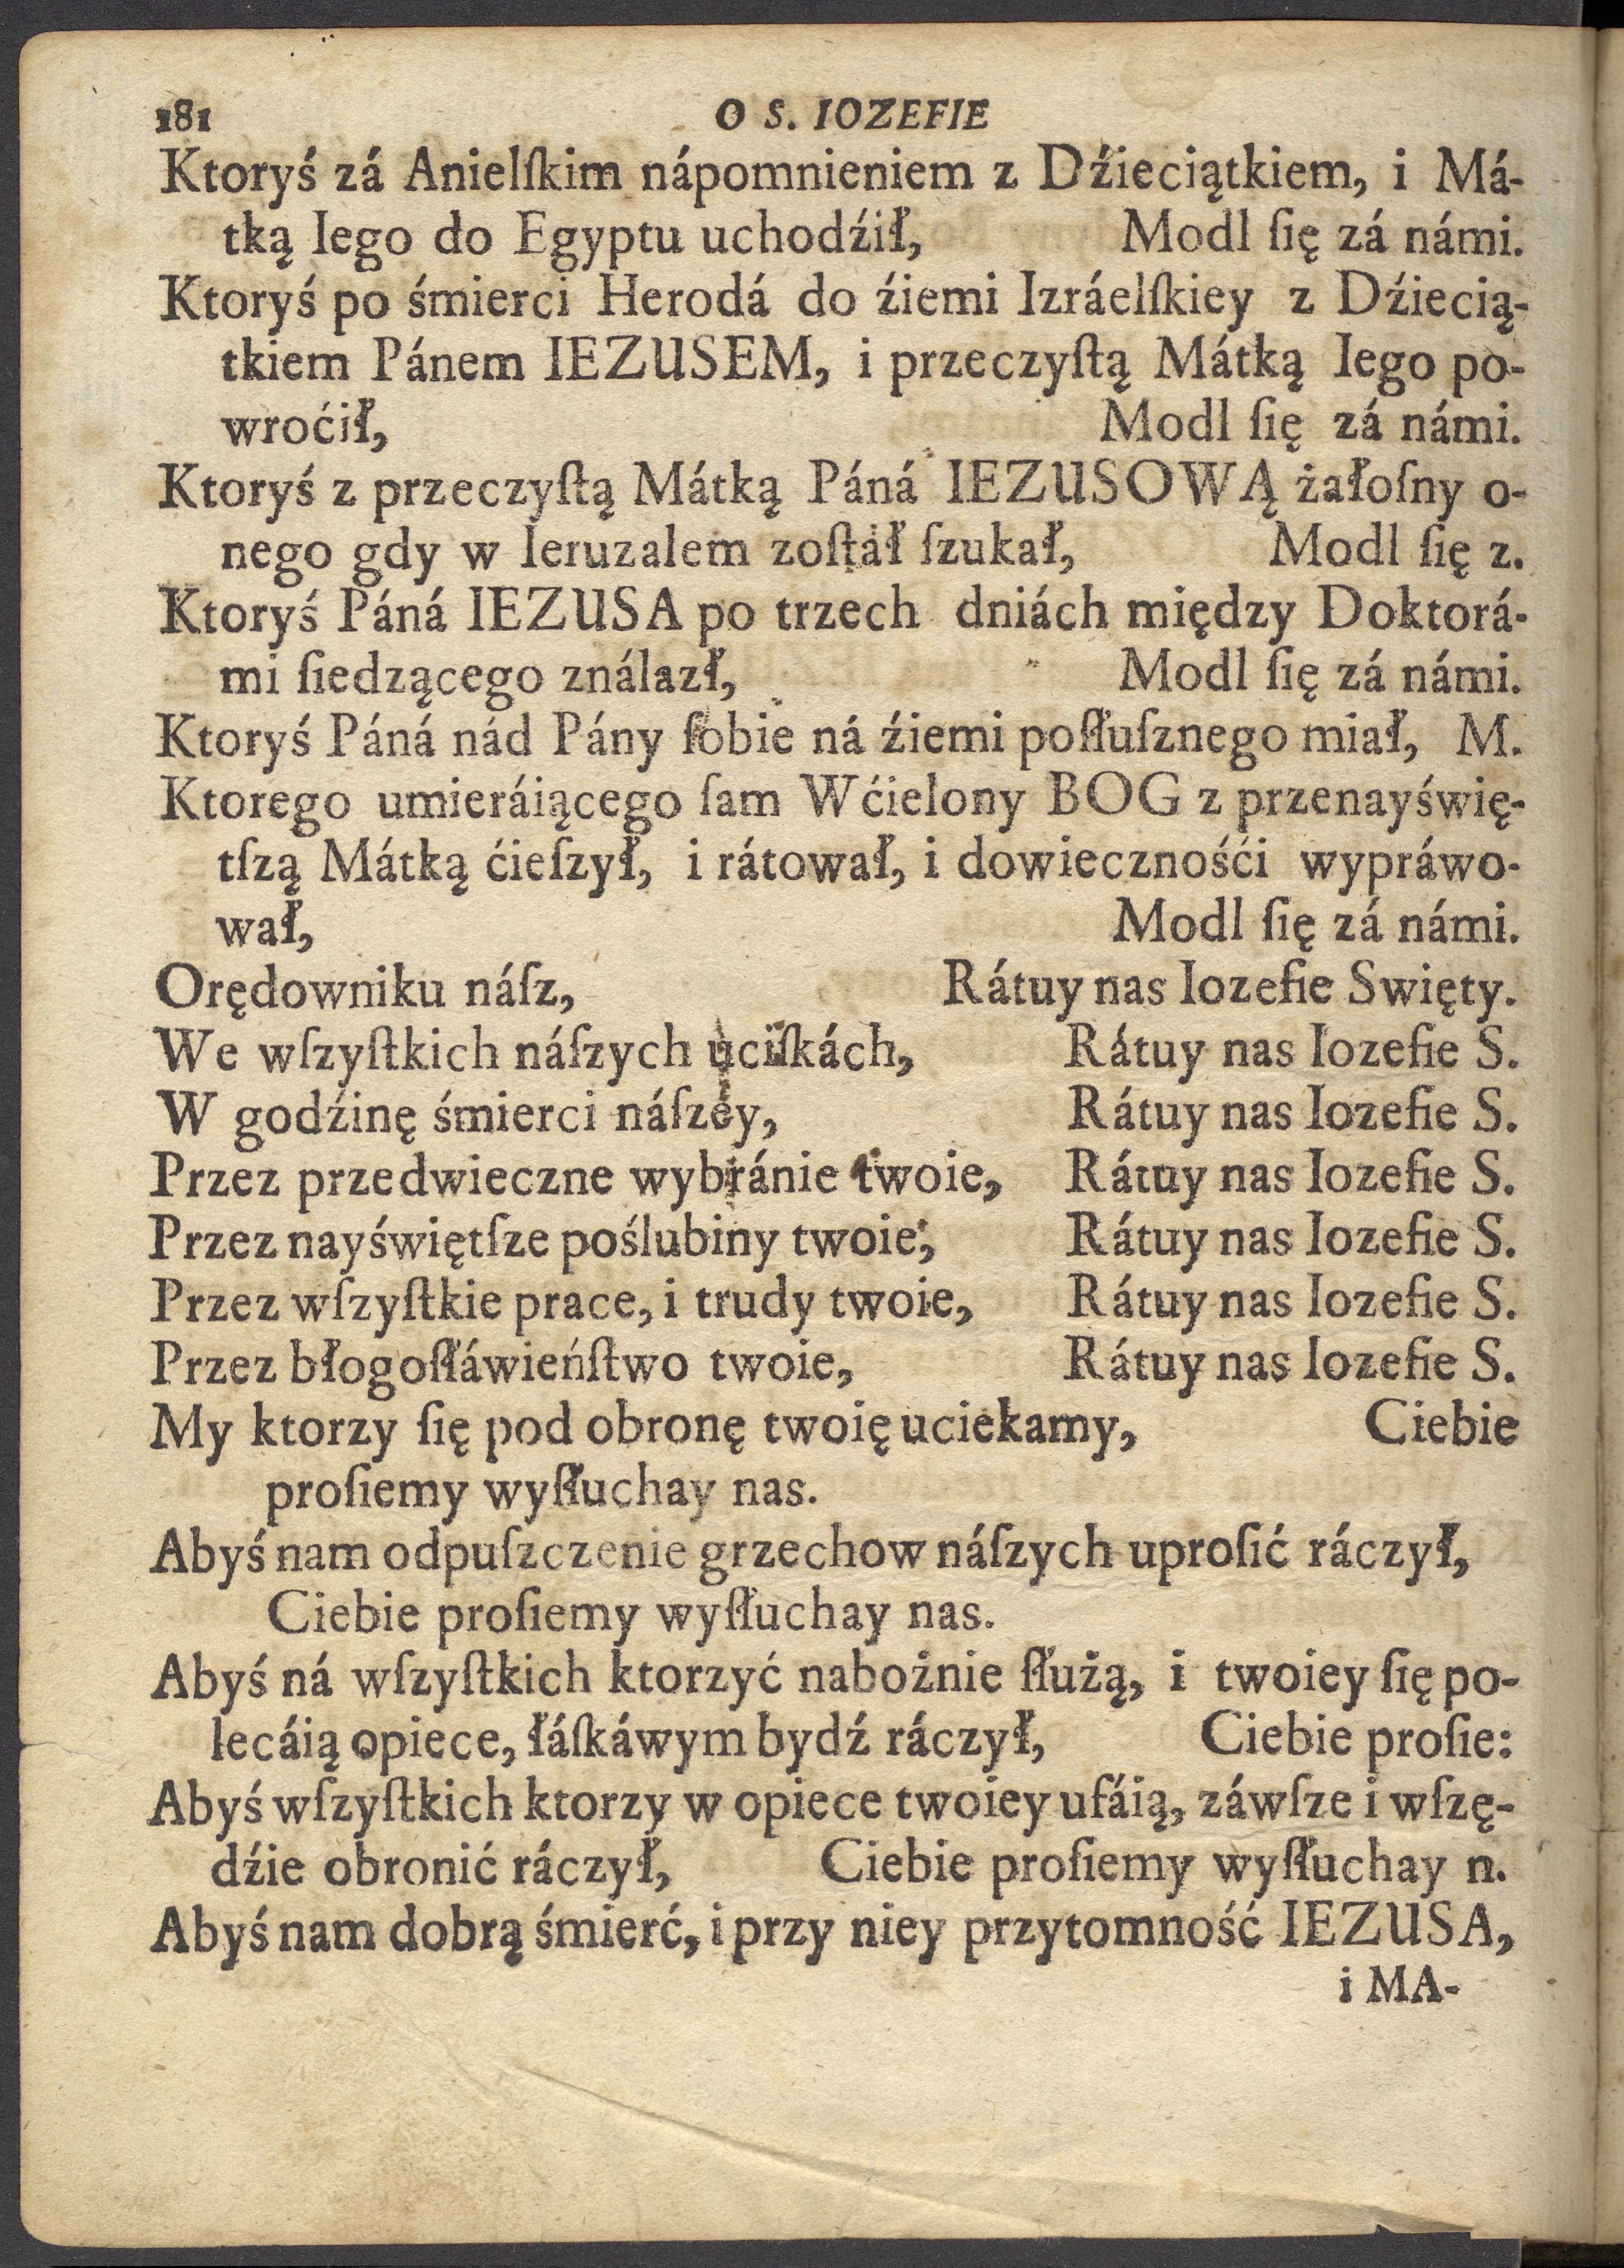 181 O S. IOZEFIE
Ktoryś zá Anielſkim nápomnieniem z Dźieciątkiem, i Má-
tką Iego do Egyptu uchodźił, Modl ſię zá námi.
Ktoryś po śmierci Herodá do źiemi Izráelſkiey z Dźiecią-
tkiem Pánem IEZUSEM, i przeczyſtą Mátką Iego po-
wroćił, Modl ſię zá námi.
Ktoryś z przeczyſtą Mátką Páná IEZUSOWĄ żałoſny o-
nego gdy w Ieruzalem zoſtáł ſzukał, Modl ſię z.
Ktoryś Páná IEZUSA po trzech dniách między Doktorá-
mi ſiedzącego ználazł, Modl ſię zá námi.
Ktoryś Páná nád Pány ſobie ná źiemi poſłuſznego miał, M.
Ktorego umieráiącego ſam Wćielony BOG z przenayświę-
tſzą Mátką ćieſzył, i rátował, i dowiecznośći wypráwo-
wał, Modl ſię zá námi.
Orędowniku náſz, Rátuy nas Iozefie Swięty.
We wſzyſtkich náſzych uciſkách, Rátuy nas Iozefie S.
W godźinę śmierci náſzey, Rátuy nas Iozefie S.
Przez przedwieczne wybránie twoie, Rátuy nas Iozefie S.
Przez nayświętſze poślubiny twoie, Rátuy nas Iozefie S.
Przez wſzyſtkie prace, i trudy twoie, Rátuy nas Iozefie S.
Przez błogoſłáwieńſtwo twoie, Rátuy nas Iozefie S.
My ktorzy ſię pod obronę twoię uciekamy, Ciebie
proſiemy wyſłuchay nas.
Abyś nam odpuſzczenie grzechow náſzych uproſić ráczył,
Ciebie proſiemy wyſłuchay nas.
Abyś ná wſzyſtkich ktorzyć nabożnie ſłużą, i twoiey ſię po-
lecáią opiece, łáſkáwym bydź ráczył, Ciebie proſie:
Abyś wſzyſtkich ktorzy w opiece twoiey ufáią, záwſze i wſzę-
dźie obronić ráczył, Ciebie proſiemy wyſłuchay n.
Abyś nam dobrą śmierć, i przy niey przytomność IEZUSA,
i MA-